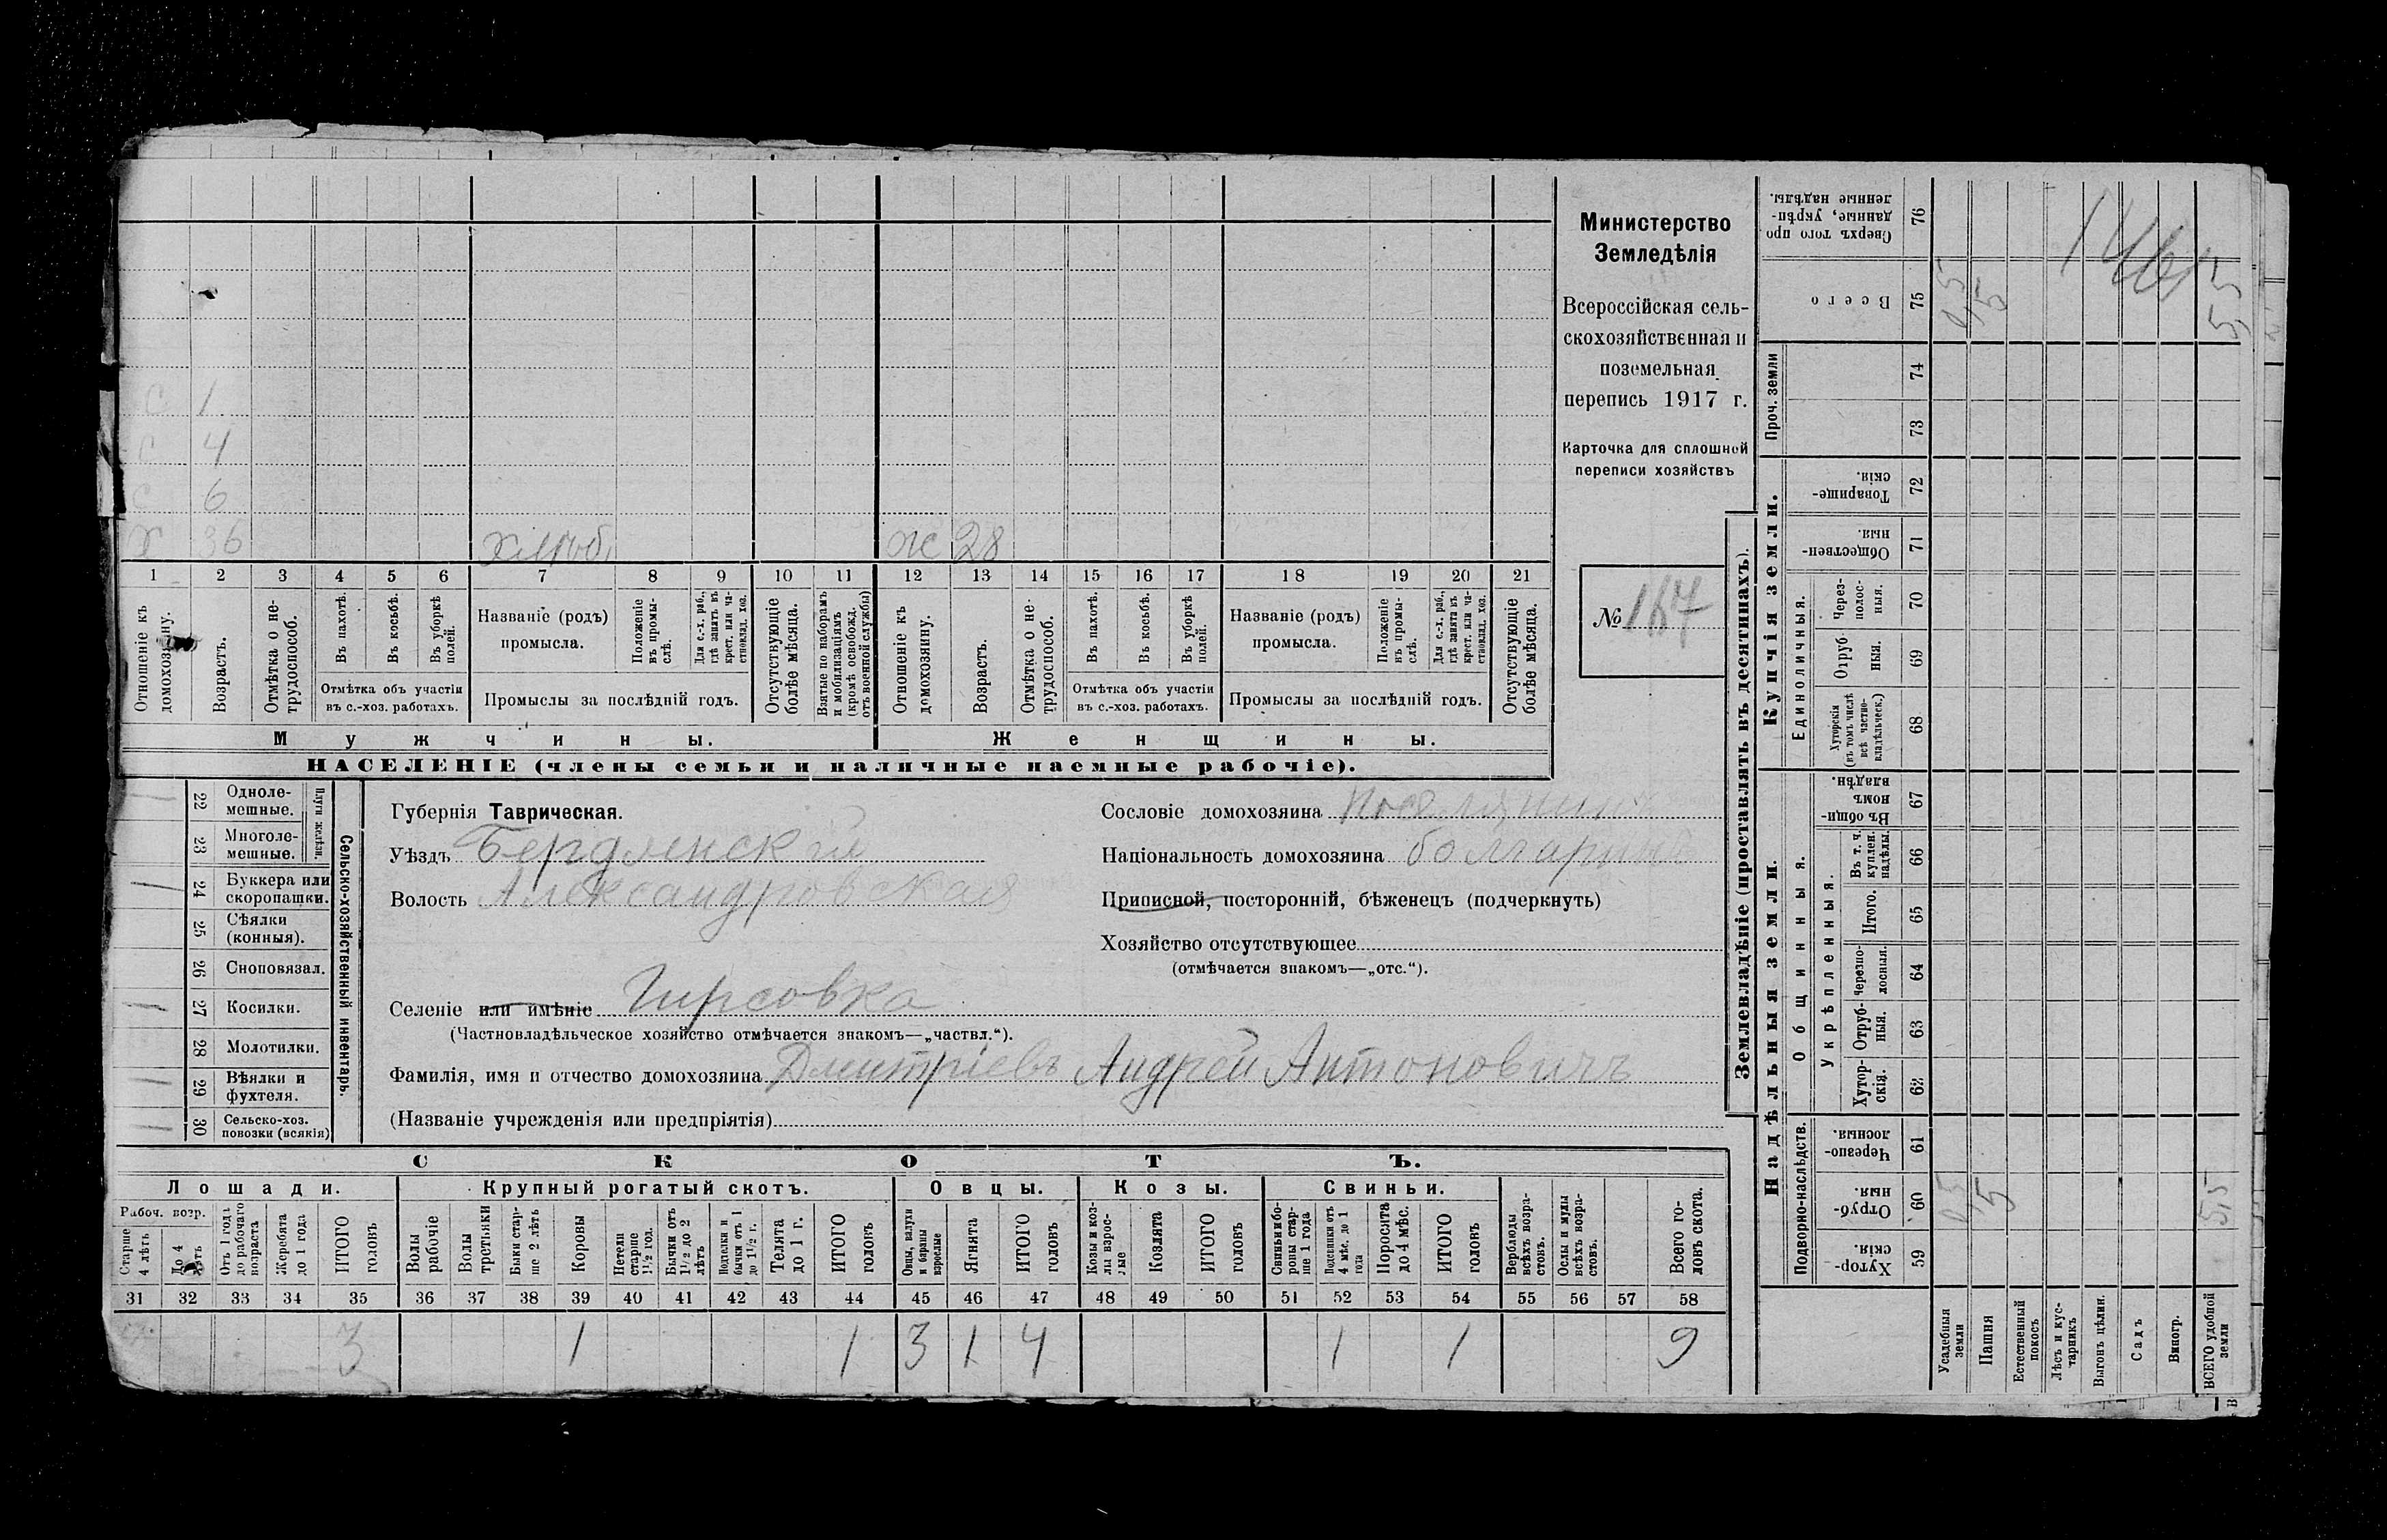 С 1
С 4
С 6
Х 36 хлѣб. Ж 28
1 2 3 4 5 6 7 8 9 10 11 12 13 14 15 16 17 18 19 20 21
Отношеніе къ домохозяину.
Возрастъ.
Отмѣтка о не-трудоспособ.
Въ пахотѣ.
Въ косьбѣ.
Въ уборкѣ полей.
Отмѣтка объ участіи
въ с.-хоз. работахъ.
Названіе (родъ)
промысла.
Положеніе въ промы-слѣ.
Для с.-х. раб., гдѣ занятъ въ крест. или ча-стновлад. хоз.
Промыслы за послѣдній годъ.
Отсутствующіе болѣе мѣсяца.
Взятые по наборамъ и мобилизаціямъ (кромѣ освобожд. отъ военной службы)
Отношеніе къ домохозяину.
Возрастъ.
Отмѣтка о не-трудоспособ.
Въ пахотѣ.
Въ косьбѣ.
Въ уборкѣ полей.
Отмѣтка объ участіи
въ с.-хоз. работахъ.
Названіе (родъ)
промысла.
Положеніе въ промы-слѣ.
Для с.-х. раб., гдѣ занята въ крест. или ча-стновлад. хоз.
Промыслы за послѣдній годъ.
Отсутствующіе болѣе мѣсяца.
Мужчины. Женщины.
НАСЕЛЕНІЕ (члены семьи и наличные наемные рабочіе).
Министерство
Земледѣлія
Всероссійская сель-
скохозяйственная и
поземельная
перепись 1917 г.
Карточка для сплошной
переписи хозяйствъ
№ 167
Сельско-хозяйственный инвентарь.
Плуги желѣзн.
22 Одноле-
мешные.
23 Многоле-
мешные.
24 Буккера или
скоропашки.
25 Сѣялки
(конныя).
26 Сноповязал.
27 Косилки.
28 Молотилки.
29 Вѣялки и
фухтеля.
30 Сельско-хоз.
повозки (всякія)
Губернія Таврическая.
Уѣздъ Бердянскій
Волость Александровская
Селеніе или имѣніе Гирсовка
(Частновладѣльческое хозяйство отмѣчается знакомъ—„частвл.“).
Фамилія, имя и отчество домохозяина Дмитріевъ Андрей Антоновичъ
(Названіе учрежденія или предпріятія)
Сословіе домохозяина поселянинъ
Національность домохозяина болгаринъ
Приписной, посторонній, бѣженецъ (подчеркнуть)
Хозяйство отсутствующее
(отмѣчается знакомъ—„отс.“).
СКОТЪ.
Лошади. Крупный рогатый скотъ. Овцы. Козы. Свиньи.
Рабоч. возр.
Старше 4 лѣтъ
До 4 лѣтъ
Отъ 1 года до рабочаго возраста
Жеребята до 1 года
ИТОГО головъ
Волы рабочіе
Волы третьяки
Быки стар-ше 2 лѣтъ
Коровы
Нетели старше 1½ год.
Бычки отъ 1½ до 2 лѣтъ
Подтелки и бычки отъ 1 до 1½ г.
Телята до 1 г.
ИТОГО головъ
Овцы, валухи и бараны взрослые
Ягнята
ИТОГО головъ
Козы и коз-лы взрос-лые
Козлята
ИТОГО головъ
Свиньи и бо-ровы стар-ше 1 года
Подсвинки отъ 4 мѣс. до 1 года
Поросята до 4 мѣс.
ИТОГО головъ
Верблюды всѣхъ возра-стовъ.
Ослы и мулы всѣхъ возра-стовъ.
Всего го-ловъ скота.
31 32 33 34 35 36 37 38 39 40 41 42 43 44 45 46 47 48 49 50 51 52 53 54 55 56 57 58
3 1 1 3 1 4 1 1 9
Землевладѣніе (проставлять въ десятинахъ).
Надѣльныя земли. Купчія земли.
Проч. земли
Подворно-наслѣдств.
Общинныя.
Укрѣпленныя.
Единоличныя.
76 Сверхъ того про-
данные, укрѣп-
ленные надѣлы.
75 Всего 0,5 5 5,5
74
73
72 Товарище-
скія.
71 Обществен-
ныя.
70 Через-
полос-
ныя.
69 Отруб
ныя.
68 Хуторскія
(въ томъ числѣ
всѣ частно-
владѣльческ.)
67 Въ общи-
номъ
владѣн.
66 Въ т. ч.
куплен.
надѣлы.
65 Итого.
64 Черезпо-
лосныя.
63 Отруб-
ныя.
62 Хутор-
скія.
61 Черезпо-
лосныя.
60 Отруб-
ныя. 0,5 5 5,5
59 Хутор-
скія.
Усадебныя
земли
Пашня
Естественный
покосъ
Лѣсъ и кус-
тарникъ
Выгонъ цѣлин.
Садъ
Виногр.
ВСЕГО удобной
земли